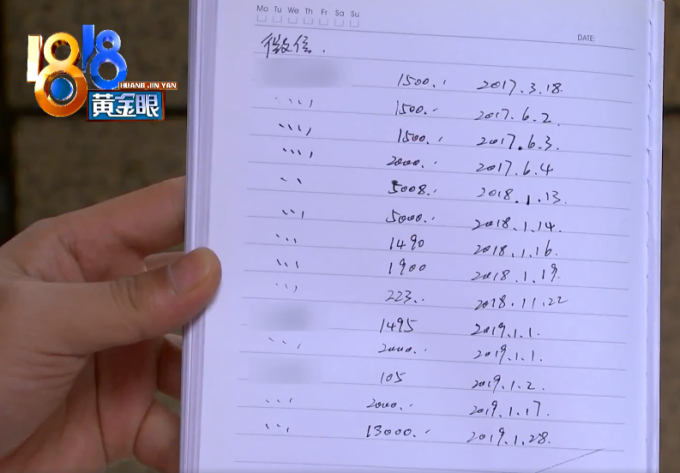 Mo Tu We Th Fr Sa Su
DATE:
1818
HUANG JIN YAN
黄金眼
微信.
1500. 2017.3.18.
1500. 2017.6.2.
1500. 2017.6.3.
2000. 2017.6.4
5008. 2018.1.13.
5000. 2018.1.14.
1490 2018.1.16.
1900 2018.1.19.
223. 2018.11.22
1495 2019.1.1.
2000. 2019.1.1.
105 2019.1.2.
2000. 2019.1.17.
13000. 2019.1.28.